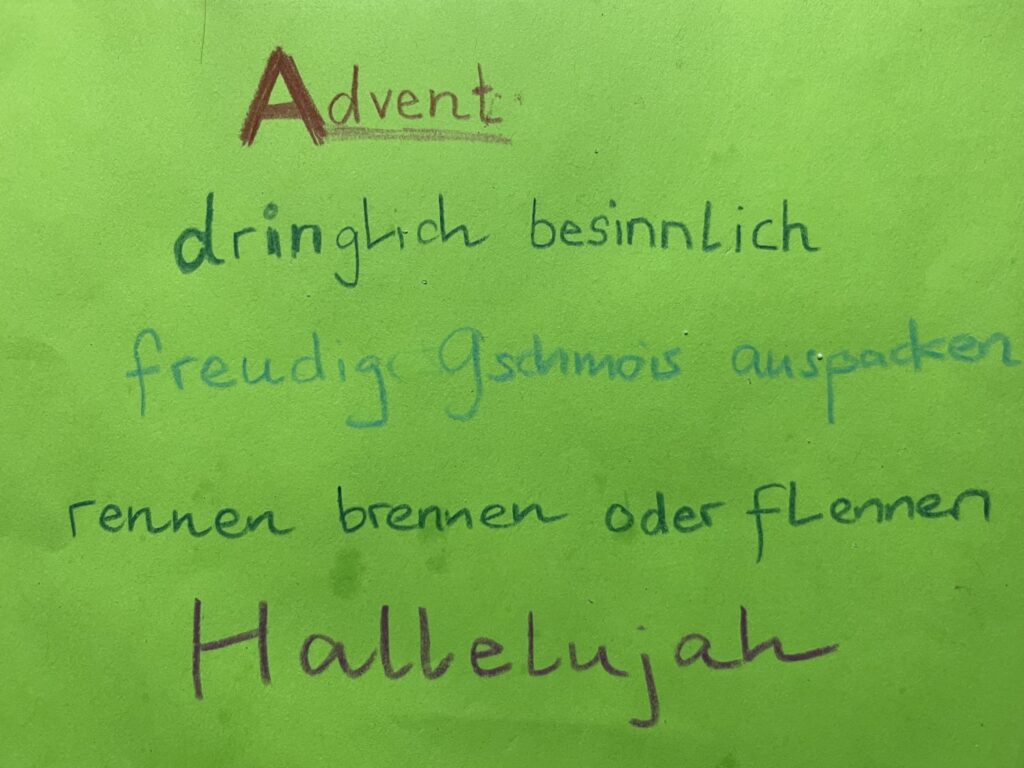 Advent
dringlich besinnlich
freudig Gschmois auspacken
rennen brennen oder flennen
Hallelujah